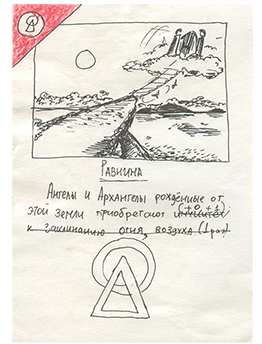 Равнина
Ангелы и Архангелы рождённые от
этой земли приобретают
к заклинанию огня, воздуха (1 раз)